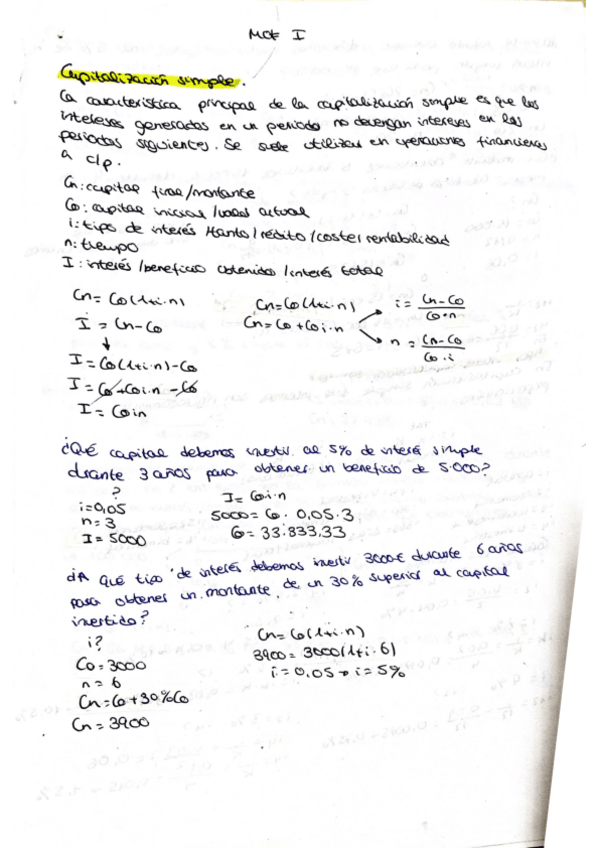 MCF I
Capitalización simple.
La característica principal de la capitalización simple es que los
intereses generados en un periodo no devengan intereses en los
periodos siguientes. Se suele utilizar en operaciones financieras
a c/p.
Cn: capital final/montante
Co: capital inicial/valor actual
i: tipo de interés /tanto/rédito/coste/rentabilidad
n: tiempo
I: interés/beneficio obtenido/interés total
Cn = Co(1+i·n)
I = Cn-Co
↓
I = Co(1+i·n)-Co
I = Co+Coi·n-Co
I = Coin
Cn = Co(1+i·n)
Cn = Co+Coi·n
i = Cn-Co / Co·n
n = Cn-Co / Co·i
¿Qué capital debemos invertir al 5% de interés simple
durante 3 años para obtener un beneficio de 5.000?
?
i=0,05
n=3
I=5000
I = Coi·n
5000 = Co · 0,05·3
Co = 33.833,33
¿A qué tipo de interés debemos invertir 3000€ durante 6 años
para obtener un montante de un 30% superior al capital
invertido?
i?
Co=3000
n=6
Cn=Co+30%Co
Cn=3900
Cn=Co(1+i·n)
3900=3000(1+i·6)
i=0,05→i=5%